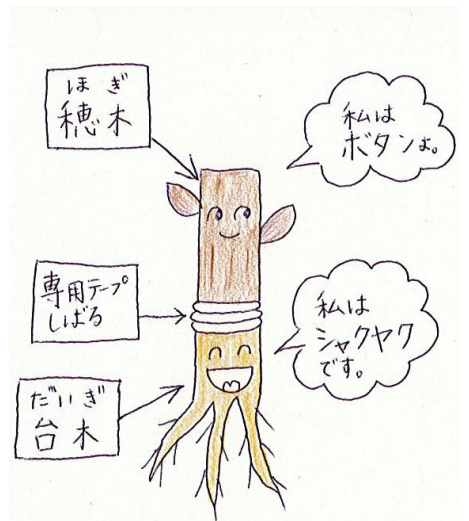 ほぎ
穂木
私は
ボタンよ。
専用テープ
しばる
私は
シャクヤク
です。
だいぎ
台木